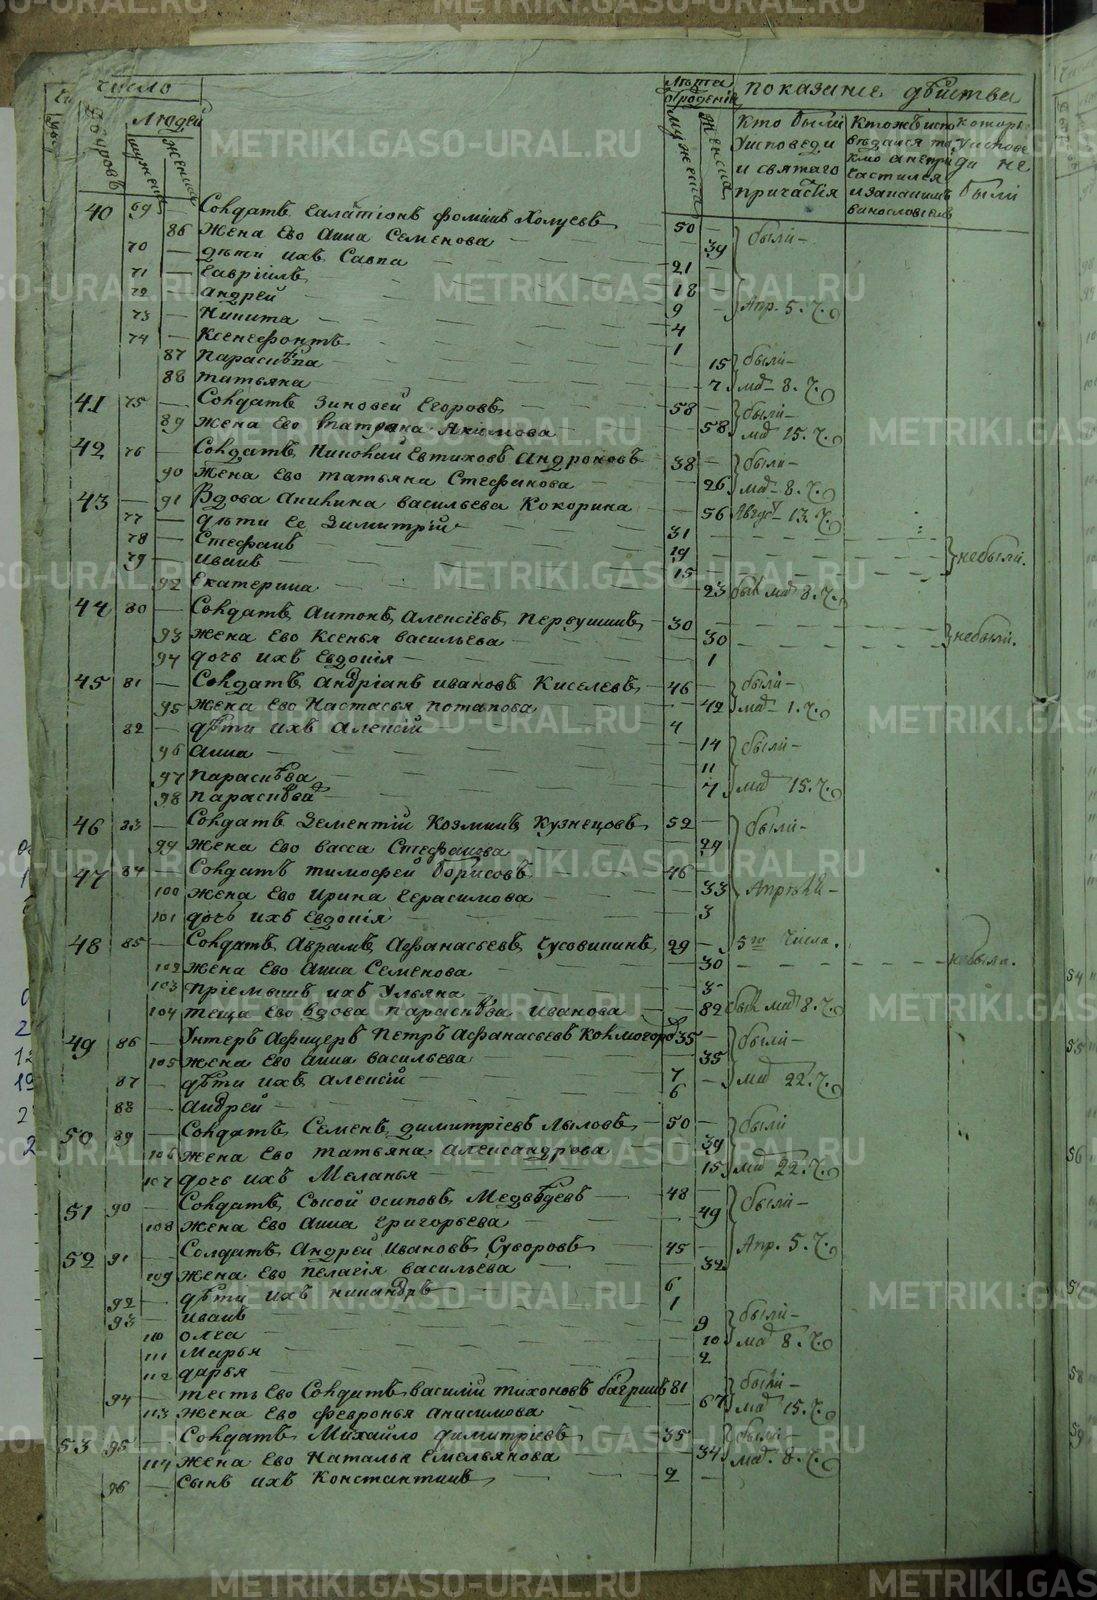 число
Дворовъ
людей
мужеска
женска
Лѣта
отрожденія
мужеска
женска
показаніе дѣйства
кто были
Уисповеди
и святаго
причастія
Ктожъ испо
вѣдался то
кмо анепри
частился
изапаишмъ
которы
уиспове
ди не
были
40 69 — Солдатъ Галатіонъ Фоминъ Холуевъ 50 —
86 Жена Ево Анна Семенова — 39 были —
70 — дѣти ихъ Савва 21
71 — Гавріилъ 18
72 — Андрей 9 Апр. 5. Ч.
73 — Никита 4
74 — Ксенефонтъ 1
87 Парасковья 15 были —
88 татьяна 7 мар 8. Ч.
41 75 — Солдатъ Зиновей Егоровъ 58 — были —
89 Жена Ево Матрона Акимова 58 мар 15. Ч.
42 76 — Солдатъ Евтиховъ Андроновъ 38 — были —
90 Жена Ево татьяна Стефанова — 26 мар 8. Ч.
43 — 91 Вдова Акилина васильева Кокорина — 56 13. Ч.
77 — дѣти Ее Димитрій 31
78 — Стефанъ 19 небыли.
79 — Иванъ 15
92 Екатерина — 23 был мар 8. Ч.
44 80 — Солдатъ Антонъ Алексіевъ Первушинъ 30
93 Жена Ево Ксенья васильева — 30 небыли.
94 дочь ихъ Евдокія — 1
45 81 — Солдатъ Андріанъ ивановъ Киселевъ 46 — были —
95 Жена Ево Настасья потапова — 42 мар 1. Ч.
82 — дѣти ихъ Алексій 4
96 Анна 14 были —
97 парасковья 11
98 парасковья 7 мар 15. Ч.
46 83 — Солдатъ Дементій Козминъ Кузнецовъ 52 — были —
99 Жена Ево васса Стефанова 29
47 84 — Солдатъ тимофей борисовъ 46 —
100 Жена Ево Ирина Герасимова — 33 Апрѣля —
101 дочь ихъ Евдокія — 3
48 85 — Солдатъ Аврамъ Афанасьевъ Чусовитинъ 29 — 5го Числа.
102 Жена Ево Анна Семенова — 30 небыла.
103 пріемышъ ихъ Ульяна — 3
104 теща Ево вдова парасковья Иванова — 82 был мар 8. Ч.
49 86 — Унтеръ Афицеръ Петръ Афанасьевъ Колмогоровъ 35 — были —
105 Жена Ево Анна васильева — 35
87 — дѣти ихъ Алексій 7 — мар 22. Ч.
88 — Андрей 6
50 89 — Солдатъ Семенъ Димитріевъ Лыловъ 50 — были
106 Жена Ево татьяна Александрова — 39
107 дочь ихъ Меланья 15 мар 22. Ч.
51 90 — Солдатъ Сысой осиповъ Медвѣдевъ 48 — были —
108 Жена Ево Анна Григорьева — 49
52 91 — Солдатъ Андрей Ивановъ Суворовъ 45 — Апр. 5. Ч.
109 Жена Ево пелагія васильева — 32
92 — дѣти ихъ никандръ 6
93 — Иванъ 1
110 олга 9 были —
111 Марья 10 мар 8. Ч.
112 дарья 2
94 — тесть Ево Солдатъ василій тихоновъ багринъ 81 были —
113 Жена Ево Февронья Анисимова — 67 мар 15. Ч.
53 95 — Солдатъ Михайло Димитріевъ 35 были —
114 Жена Ево Наталья Емельянова — 34 мар. 8. Ч.
96 — Сынъ ихъ Константинъ 2 —
METRIKI.GASO-URAL.RU